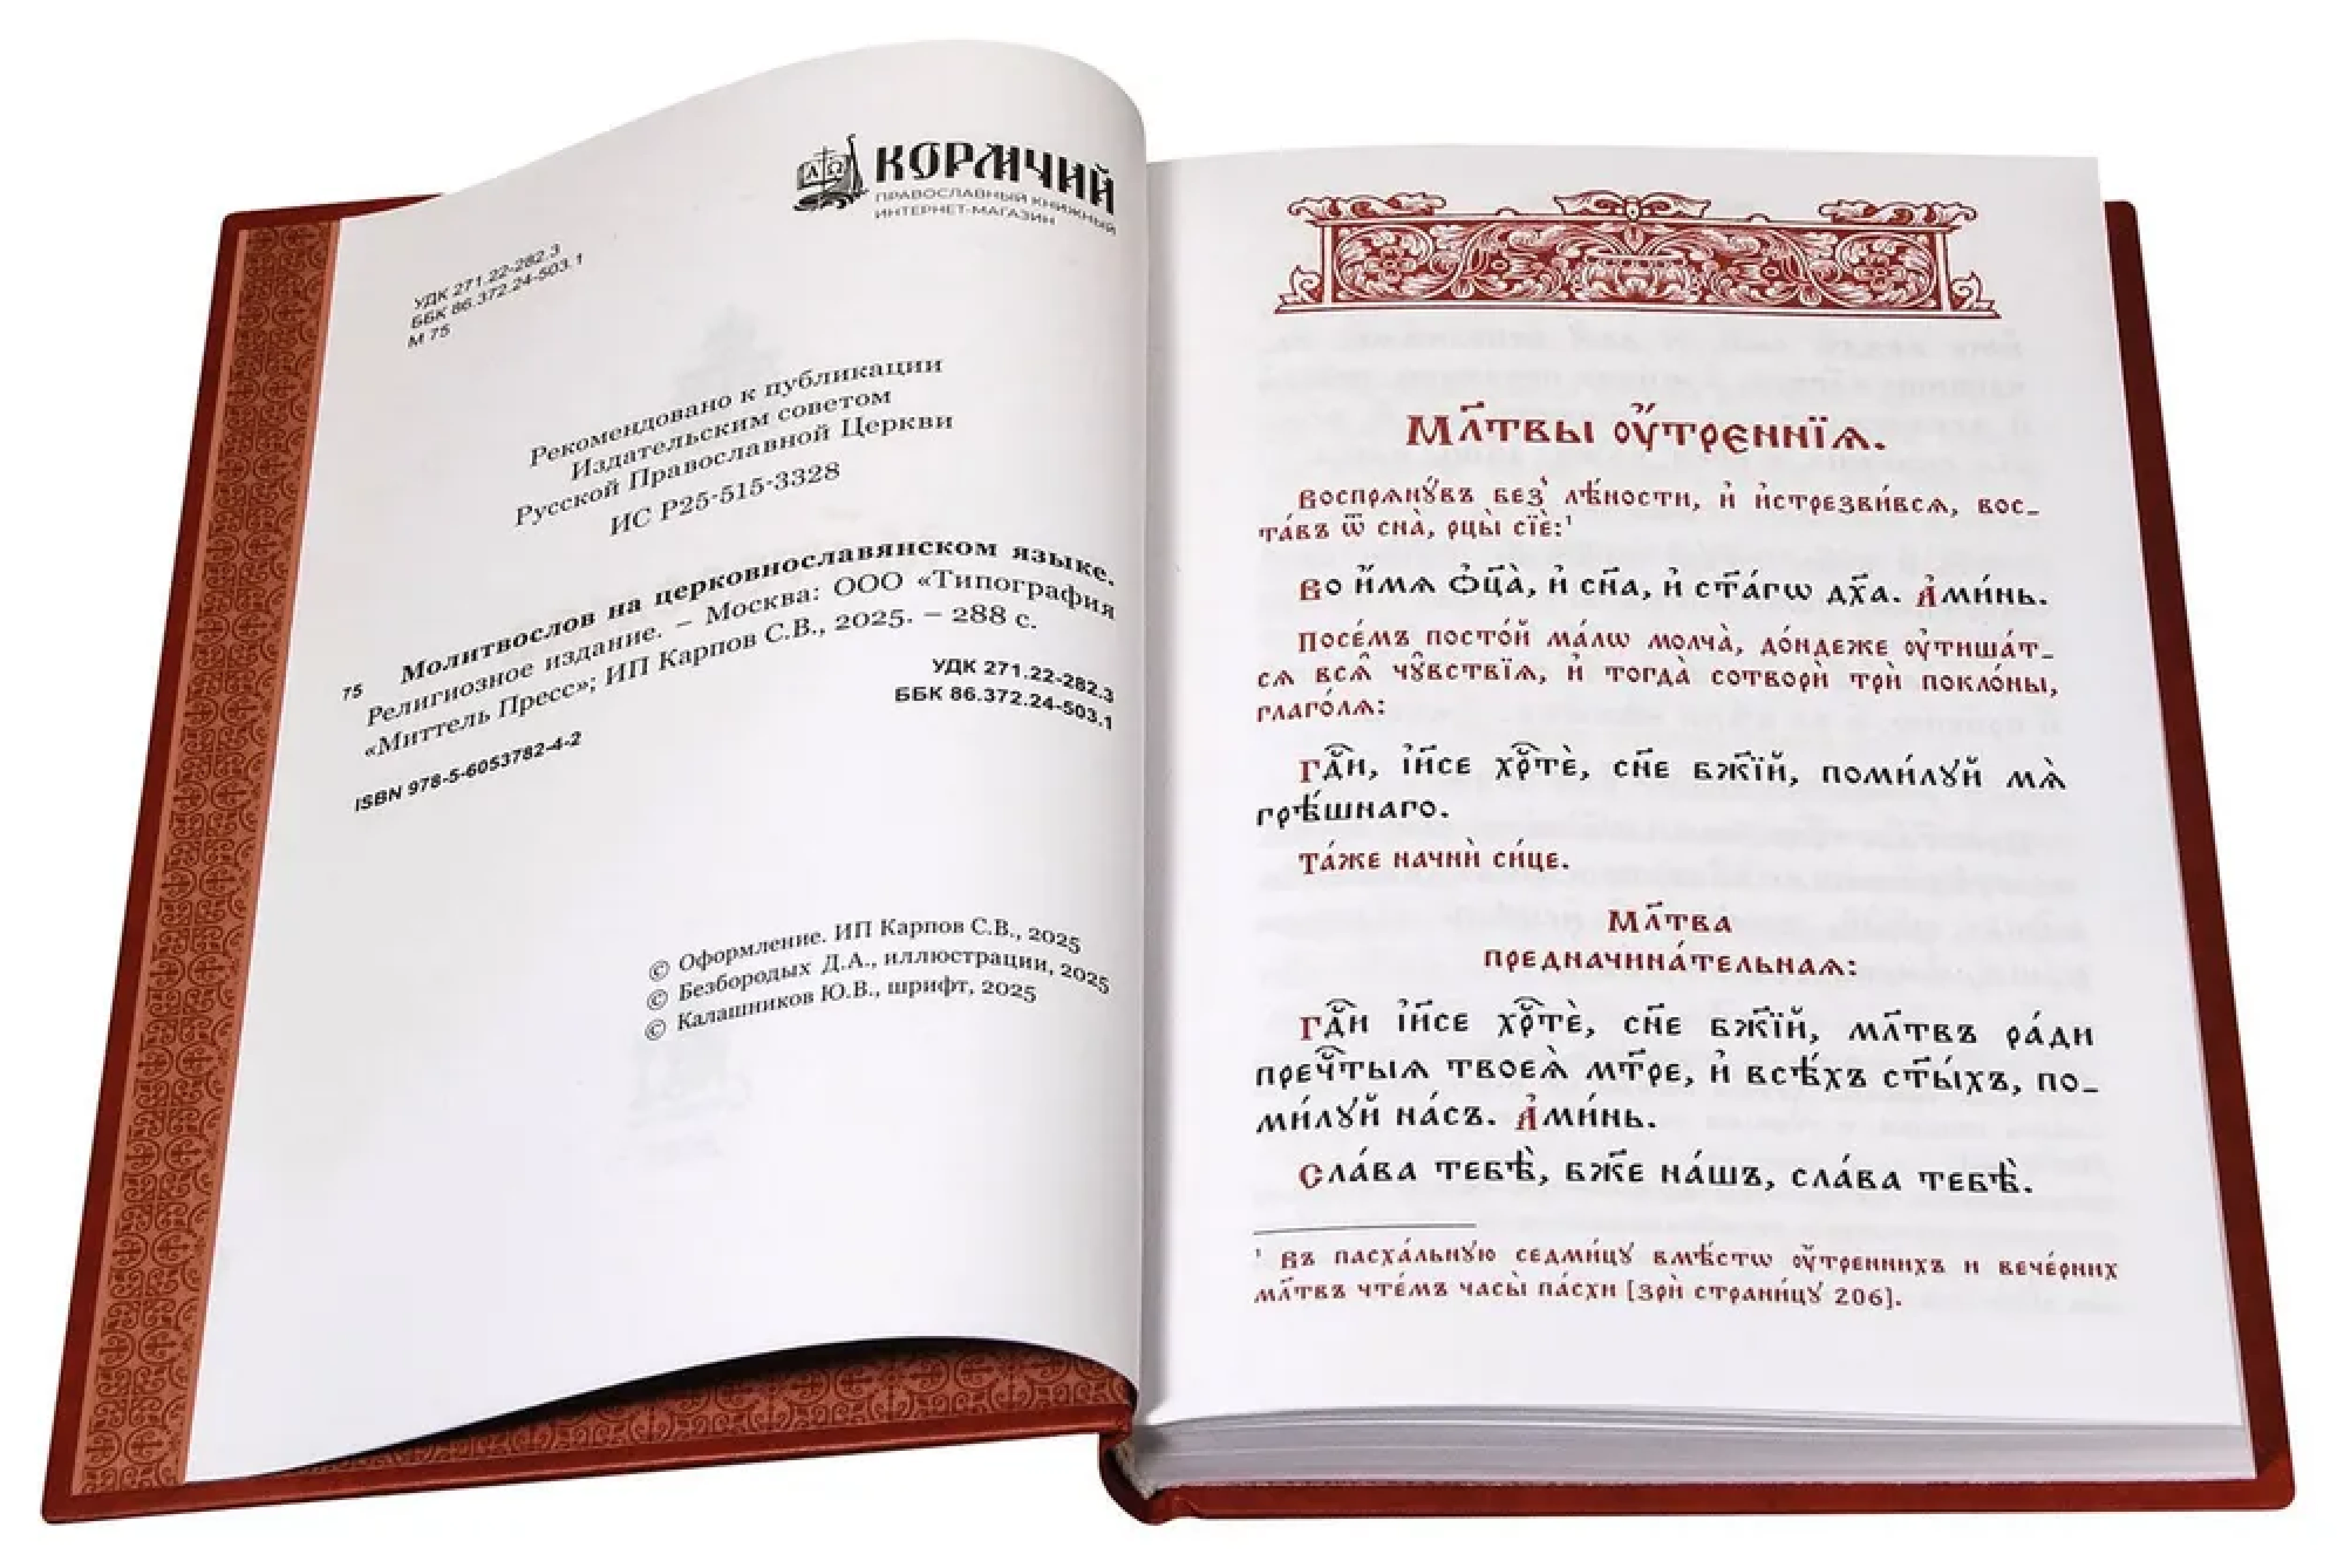 КОРМЧИЙ
ПРАВОСЛАВНЫЙ КНИЖНЫЙ
ИНТЕРНЕТ-МАГАЗИН
УДК 271.22-282.3
ББК 86.372.24-503.1
М 75
Рекомендовано к публикации
Издательским советом
Русской Православной Церкви
ИС Р25-515-3328
Молитвослов на церковнославянском языке.
75 Религиозное издание. – Москва: ООО «Типография
«Миттель Пресс»; ИП Карпов С.В., 2025. – 288 с.
УДК 271.22-282.3
ББК 86.372.24-503.1
ISBN 978-5-6053782-4-2
© Оформление. ИП Карпов С.В., 2025
© Безбородых Д.А., иллюстрации, 2025
© Калашников Ю.В., шрифт, 2025
Мл҃твы ᲂу҆́трєннїѧ.
Воспрѧнꙋ́въ без̾ лѣ́ности, и҆ и҆стрезви́всѧ, вос-
та́въ ѿ сна̀, рцы̀ сїѐ:¹
Во и҆́мѧ ѻ҆ц҃а̀, и҆ сн҃а, и҆ ст҃а́гѡ дх҃а. А҆ми́нь.
Посе́мъ посто́й ма́лѡ молча̀, до́ндеже ᲂу҆тиша́т-
сѧ всѧ̑ чꙋ̑вствїѧ, и҆ тогда̀ сотворѝ трѝ покло́ны,
глаго́лѧ:
Гдⷭ҇и, і҆и҃се хрⷭ҇тѐ, сн҃е бж҃їй, поми́лꙋй мѧ̀
грѣ́шнаго.
Та́же начнѝ си́це.
Мл҃тва
предначина́тельнаѧ:
Гдⷭ҇и, і҆и҃се хрⷭ҇тѐ, сн҃е бж҃їй, мл҃твъ ра́ди
пречⷭ҇тыѧ твоеѧ̀ мт҃ре, и҆ всѣ́хъ ст҃ы́хъ, по-
ми́лꙋй на́съ. А҆ми́нь.
Сла́ва тебѣ̀, бж҃е на́шъ, сла́ва тебѣ̀.
¹ Въ пасха́льнꙋю седми́цꙋ вмѣ́стѡ ᲂу҆́тренних​ъ и вече́рних
мл҃твъ чте́мъ часы̀ па́схи [зрѝ страни́цꙋ 206].